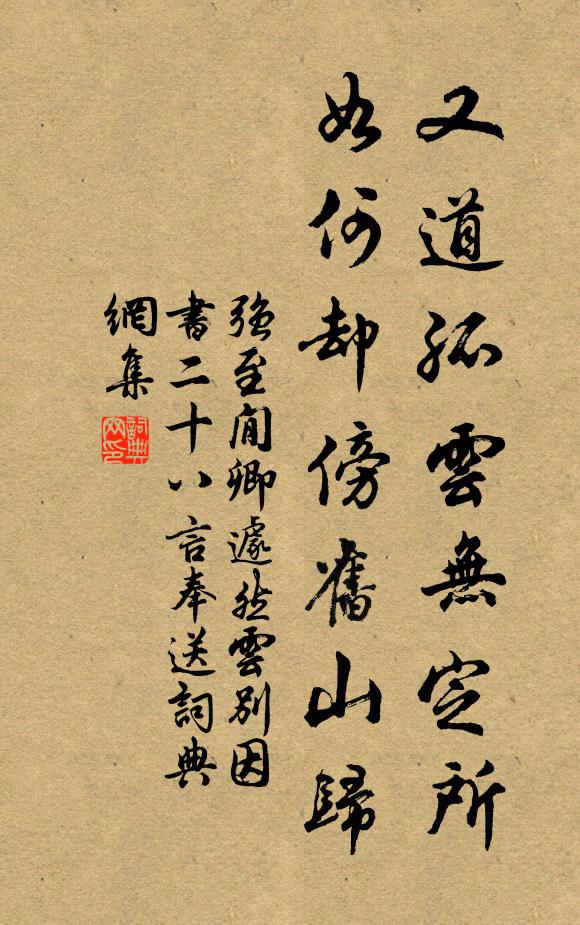 又道孤雲無定所
如何却傍舊山歸
強至閒卿遽然雲別因
書二十八言奉送詞典
網集
詞典
网印